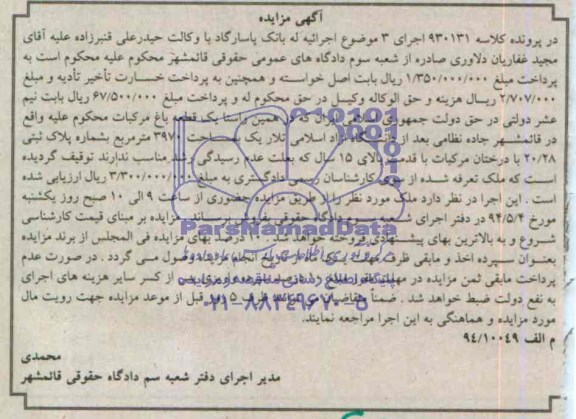 آگهی مزایده
در پرونده کلاسه ۹۳۰۱۳۱ اجرای ۳ موضوع اجرائیه له بانک پاسارگاد با وکالت حیدرعلی قنبرزاده علیه آقای
مجید غفاریان دلاوری صادره از شعبه سوم دادگاه های عمومی حقوقی قائمشهر محکوم علیه محکوم است به
پرداخت مبلغ ۱/۳۵۰/۰۰۰/۰۰۰ ریال بابت اصل خواسته و همچنین به پرداخت خسارت تأخیر تأدیه و مبلغ
۲/۷۰۷/۰۰۰ ریال هزینه و حق الوکاله وکیل در حق محکوم له و پرداخت مبلغ ۶۷/۵۰۰/۰۰۰ ریال بابت نیم
عشر دولتی در حق دولت جمهوری که در همین راستا یک قطعه باغ مرکبات محکوم علیه واقع
در قائمشهر جاده نظامی بعد از آزاد اسلامی تلار یک به مساحت ۳۹۷۰ مترمربع بشماره پلاک ثبتی
۲۰/۲۸ با درختان مرکبات با قدمت بالای ۱۵ سال که بعلت عدم رسیدگی رشد مناسب ندارند توقیف گردیده
است که ملک تعرفه شده از سوی کارشناسان رسمی دادگستری به مبلغ ۳/۳۰۰/۰۰۰/۰۰۰ ریال ارزیابی شده
است . این اجرا در نظر دارد ملک مورد نظر را از طریق مزایده حضوری از ساعت ۹ الی ۱۰ صبح روز یکشنبه
مورخ ۹۴/۵/۴ در دفتر اجرای شعبه سوم دادگاه حقوقی بفروش برساند. مزایده بر مبنای قیمت کارشناسی
شروع و به بالاترین بهای پیشنهادی فروخته خواهد شد . ۱۰ درصد بهای مزایده فی المجلس از برنده مزایده
بعنوان سپرده اخذ و مابقی ظرف مهلت یک ماه از تاریخ انجام مزایده وصول می گردد . در صورت عدم
پرداخت مابقی ثمن مزایده در مهلت مقرر از کسر سایر هزینه های اجرای
به نفع دولت ضبط خواهد شد . ضمناً متقاضیان ظرف ۵ روز قبل از موعد مزایده جهت رویت مال
مورد مزایده و هماهنگی به این اجرا مراجعه نمایند.
م الف ۹۴/۱۰۰۴۹
محمدی
مدیر اجرای دفتر شعبه سم دادگاه حقوقی قائمشهر
ParsNamadData
۰۲۱-۸۸۳۴۹۶۷۰-۵